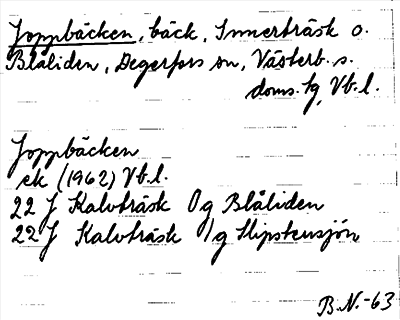 Joppbäcken, bäck, Innerträsk o.
Blåliden, Degerfors sn, Västerb. s.
doms. tg, Vb. l.
Joppbäcken
ek (1962) Vb. l.
22 J Kalvträsk 0g Blåliden
22 J Kalvträsk 1g Slipstensjön
B.N.-63